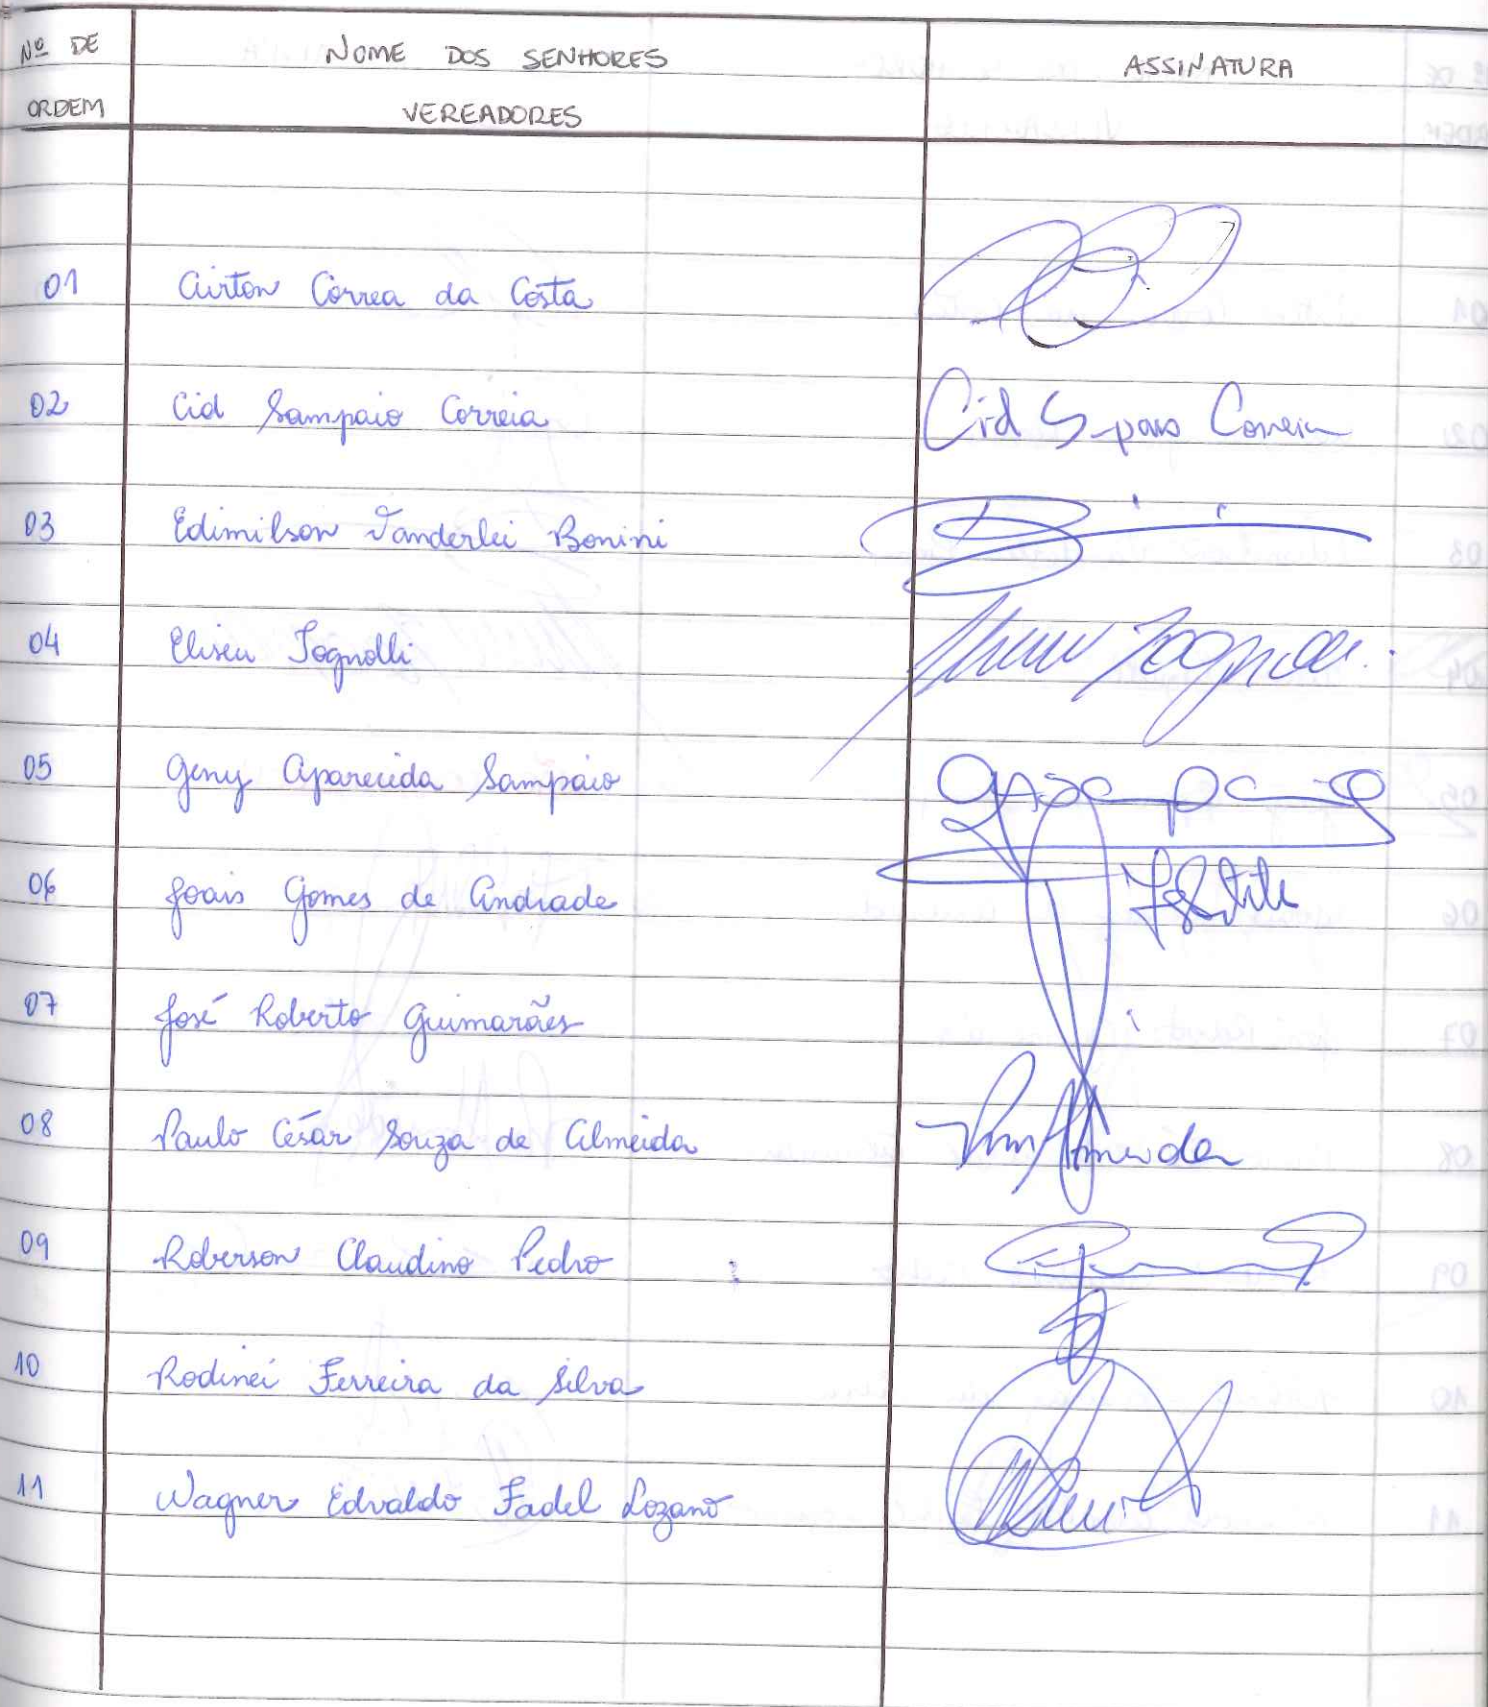 Nº DE NOME DOS SENHORES ASSINATURA
ORDEM VEREADORES
01 Airton Côrrea da Costa
02 Cid Sampaio Correia Cid Correia
03 Edimilson Vanderlei Bonini
04 Eliseu Tognolli
05 Geny Aparecida Sampaio
06 Gomes de Andrade
07 José Roberto Guimarães
08 Paulo César Souza de Almeida Almeida
09 Roberson Claudino Pedro
10 Rodinei Ferreira da Silva
11 Wagner Edvaldo Fadel Lozano